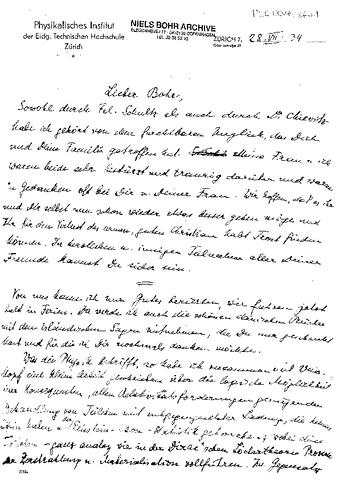 Physikalisches Institut
der Eidg. Technischen Hochschule
Zürich
NIELS BOHR ARCHIVE
ZÜRICH 7, 28. VII. 34
Lieber Bohr,
Sowohl durch Frl. Schultz als auch durch Dr. Chievitz
habe ich gehört von dem furchtbaren Unglück, das Dich
und Deine Familie getroffen hat. Meine Frau u. ich
waren beide sehr bestürzt und traurig darüber und waren
in Gedanken oft bei Dir u. Deiner Frau. Wir hoffen, daß es ihr
und Dir selbst nun schon wieder etwas besser gehen möge und
Ihr für den Verlust des armen, guten Christian habt Trost finden
können. Der herzlichen u. innigen Teilnahme aller Deiner
Freunde kannst Du sicher sein.
Von uns kann ich nur Gutes berichten, wir fahren jetzt
bald in Ferien. Da werde ich auch die schönen dänischen Bücher
mit den isländischen Sagen mitnehmen, die Du mir geschenkt
hast und für die ich Dir nochmals danken möchte.
Was die Physik betrifft, so habe ich zusammen mit Weiss-
kopf eine kleine Arbeit geschrieben über die logische Möglichkeit
einer konsequenten, allen Relativitätsforderungen genügenden
Behandlung von Teilchen mit entgegengesetzter Ladung, die keinen
Spin haben u. der Einstein-Bose-Statistik gehorchen u. wobei diese
Teilchen - ganz analog wie in der Dirac'schen Löchertheorie Prozesse
der Zerstrahlung u. Materialisation vollführen. Im Gegensatz